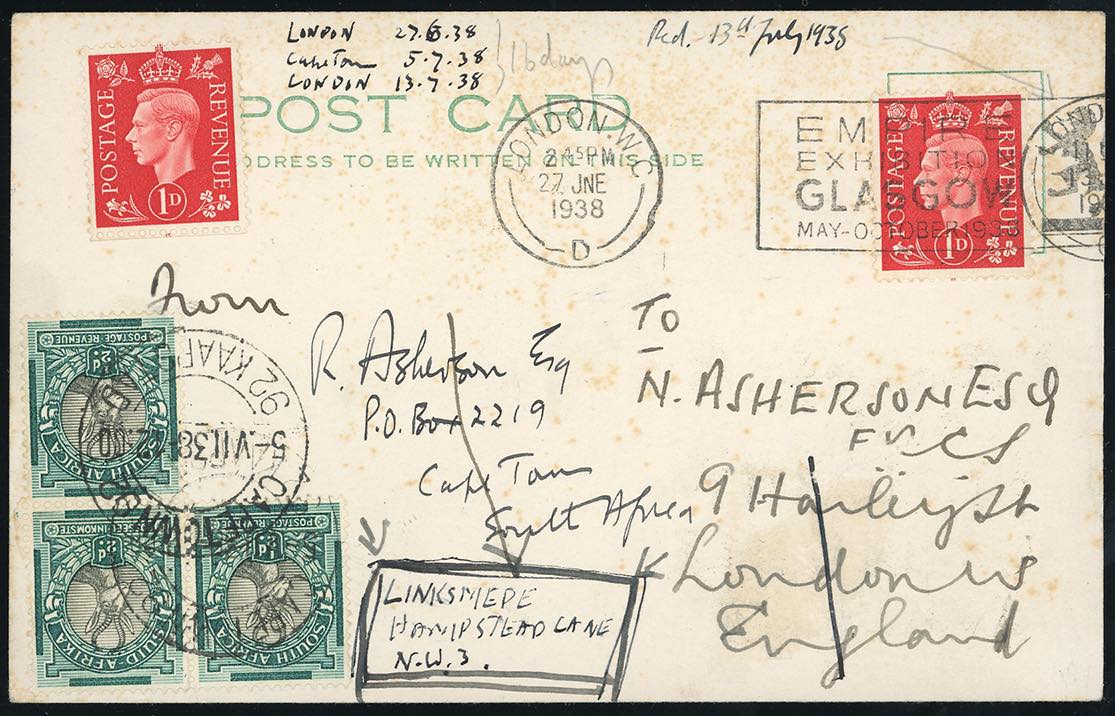 LONDON 27.6.38
Cape Town 5.7.38
LONDON 13.7.38
16 days
Rcd. 13th July 1938
POST CARD
ADDRESS TO BE WRITTEN ON THIS SIDE
POSTAGE REVENUE
1D
LONDON W.C.
2.45 PM
27 JNE
1938
D
EMPIRE
EXHIBITION
GLASGOW
MAY-OCTOBER 1938
POSTAGE REVENUE
1D
From
R. Asherson Esq
P.O. Box 2219
Cape Town
South Africa
To
N. ASHERSON ESQ
FRCS
9 Harley St
London W1
England
LINKSMEDE
HAMPSTEAD LANE
N.W.3.
POSTAGE-REVENUE
½D
SOUTH AFRICA
5-VII.38
CAPE TOWN
½D
SUID-AFRIKA
POSTAGE-REVENUE
½D
SOUTH AFRICA